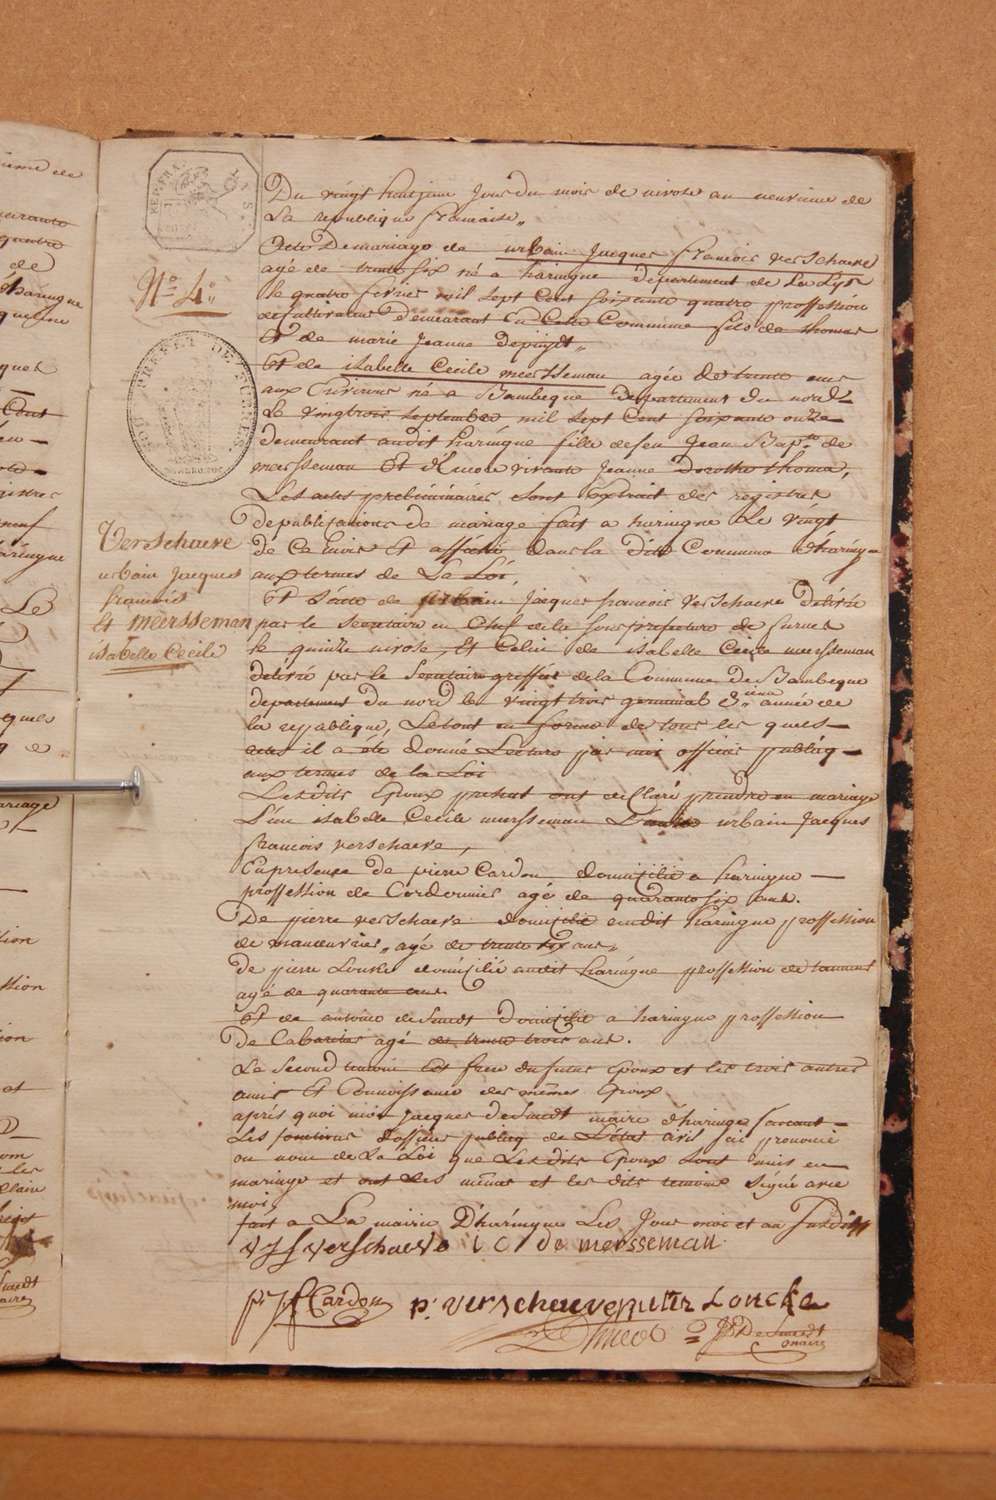 REP. FRA.
SOUS PREFET DE FURNES
Nº 4
Verschaeve
urbain Jacques
francois
et meersseman
isabelle Cecile
Du vingt huitieme Jour du mois de nivose an neuvieme de
La republique francaise,,
Acte De mariage de urbain Jacques francois verschaeve
agé de trente six né a haringue departement de La Lys
le quatre fevrier mil sept Cent soixante quatre proffession
de cultivateur demeurant en Cette Commune fils de thomas
Et de marie Jeanne
Et de isabelle Cecile meersseman agée de trente ans
aux Environs né a Bambeque Departement du nord
Le vingtrois septembre mil sept Cent soixante onze
demeurant audit haringue fille de feu Jean Bapte de
meersseman Et d'Encore vivante Jeanne Dorothe thoma,
Les actes preliminaires sont Extrait des registres
de publications de mariage fait a haringue Le vingt
de Ce mois Et affiché dans la dite Commune d'haringue
aux termes de La Loi,
Et l'acte de urbain Jacques francois verschaeve Delivré
par le Secretaire en Chef de la Sousprefecture de furnes
le quinze nivose, Et Celui de isabelle Cecile meersseman
delivré par le Secretaire greffier de la Commune de Bambeque
departement du nord le vingt trois germinal 8.ieme année de
la republique, Le tout en forme de tous les quels
actes il a été donné Lecture par moi officier publicq
aux termes de la Loi
Lesdits Epoux present ont declaré prendre en mariage
L'un isabelle Cecile meersseman L'autre urbain Jacques
francois verschaeve,
En presence de pierre Cardon domicilié a haringue
proffession de Cordonnier agé de quarante six ans.
De pierre verschaeve domicilié audit haringue proffession
de manœuvrier,, agé de trente six ans,,
de pierre Loncke domicilié audit haringue proffession de
agé de quarante ans
Et de antoine de Smedt Domicilié a haringue proffession
De Cabaretier agé de trente trois ans.
Le Second temoin Est frere du futur Epoux et les trois autres
amis Et Connoissance des mêmes Epoux
après quoi moi Jacques DeSmedt maire d'haringe faisant
Les fonctions d'officier publicq de L'état civil j'ai prononcé
au nom de La Loi que Lesdits Epoux Sont unis en
mariage et ont Les mêmes et les dits temoins signé avec
moi,
fait a La mairie D'haringue Les Jour mois et an Susdits
v j f verschaeve i C de mersseman
p. j f Cardon p. verschaeve pieter Loncke
DeSmedt
maire